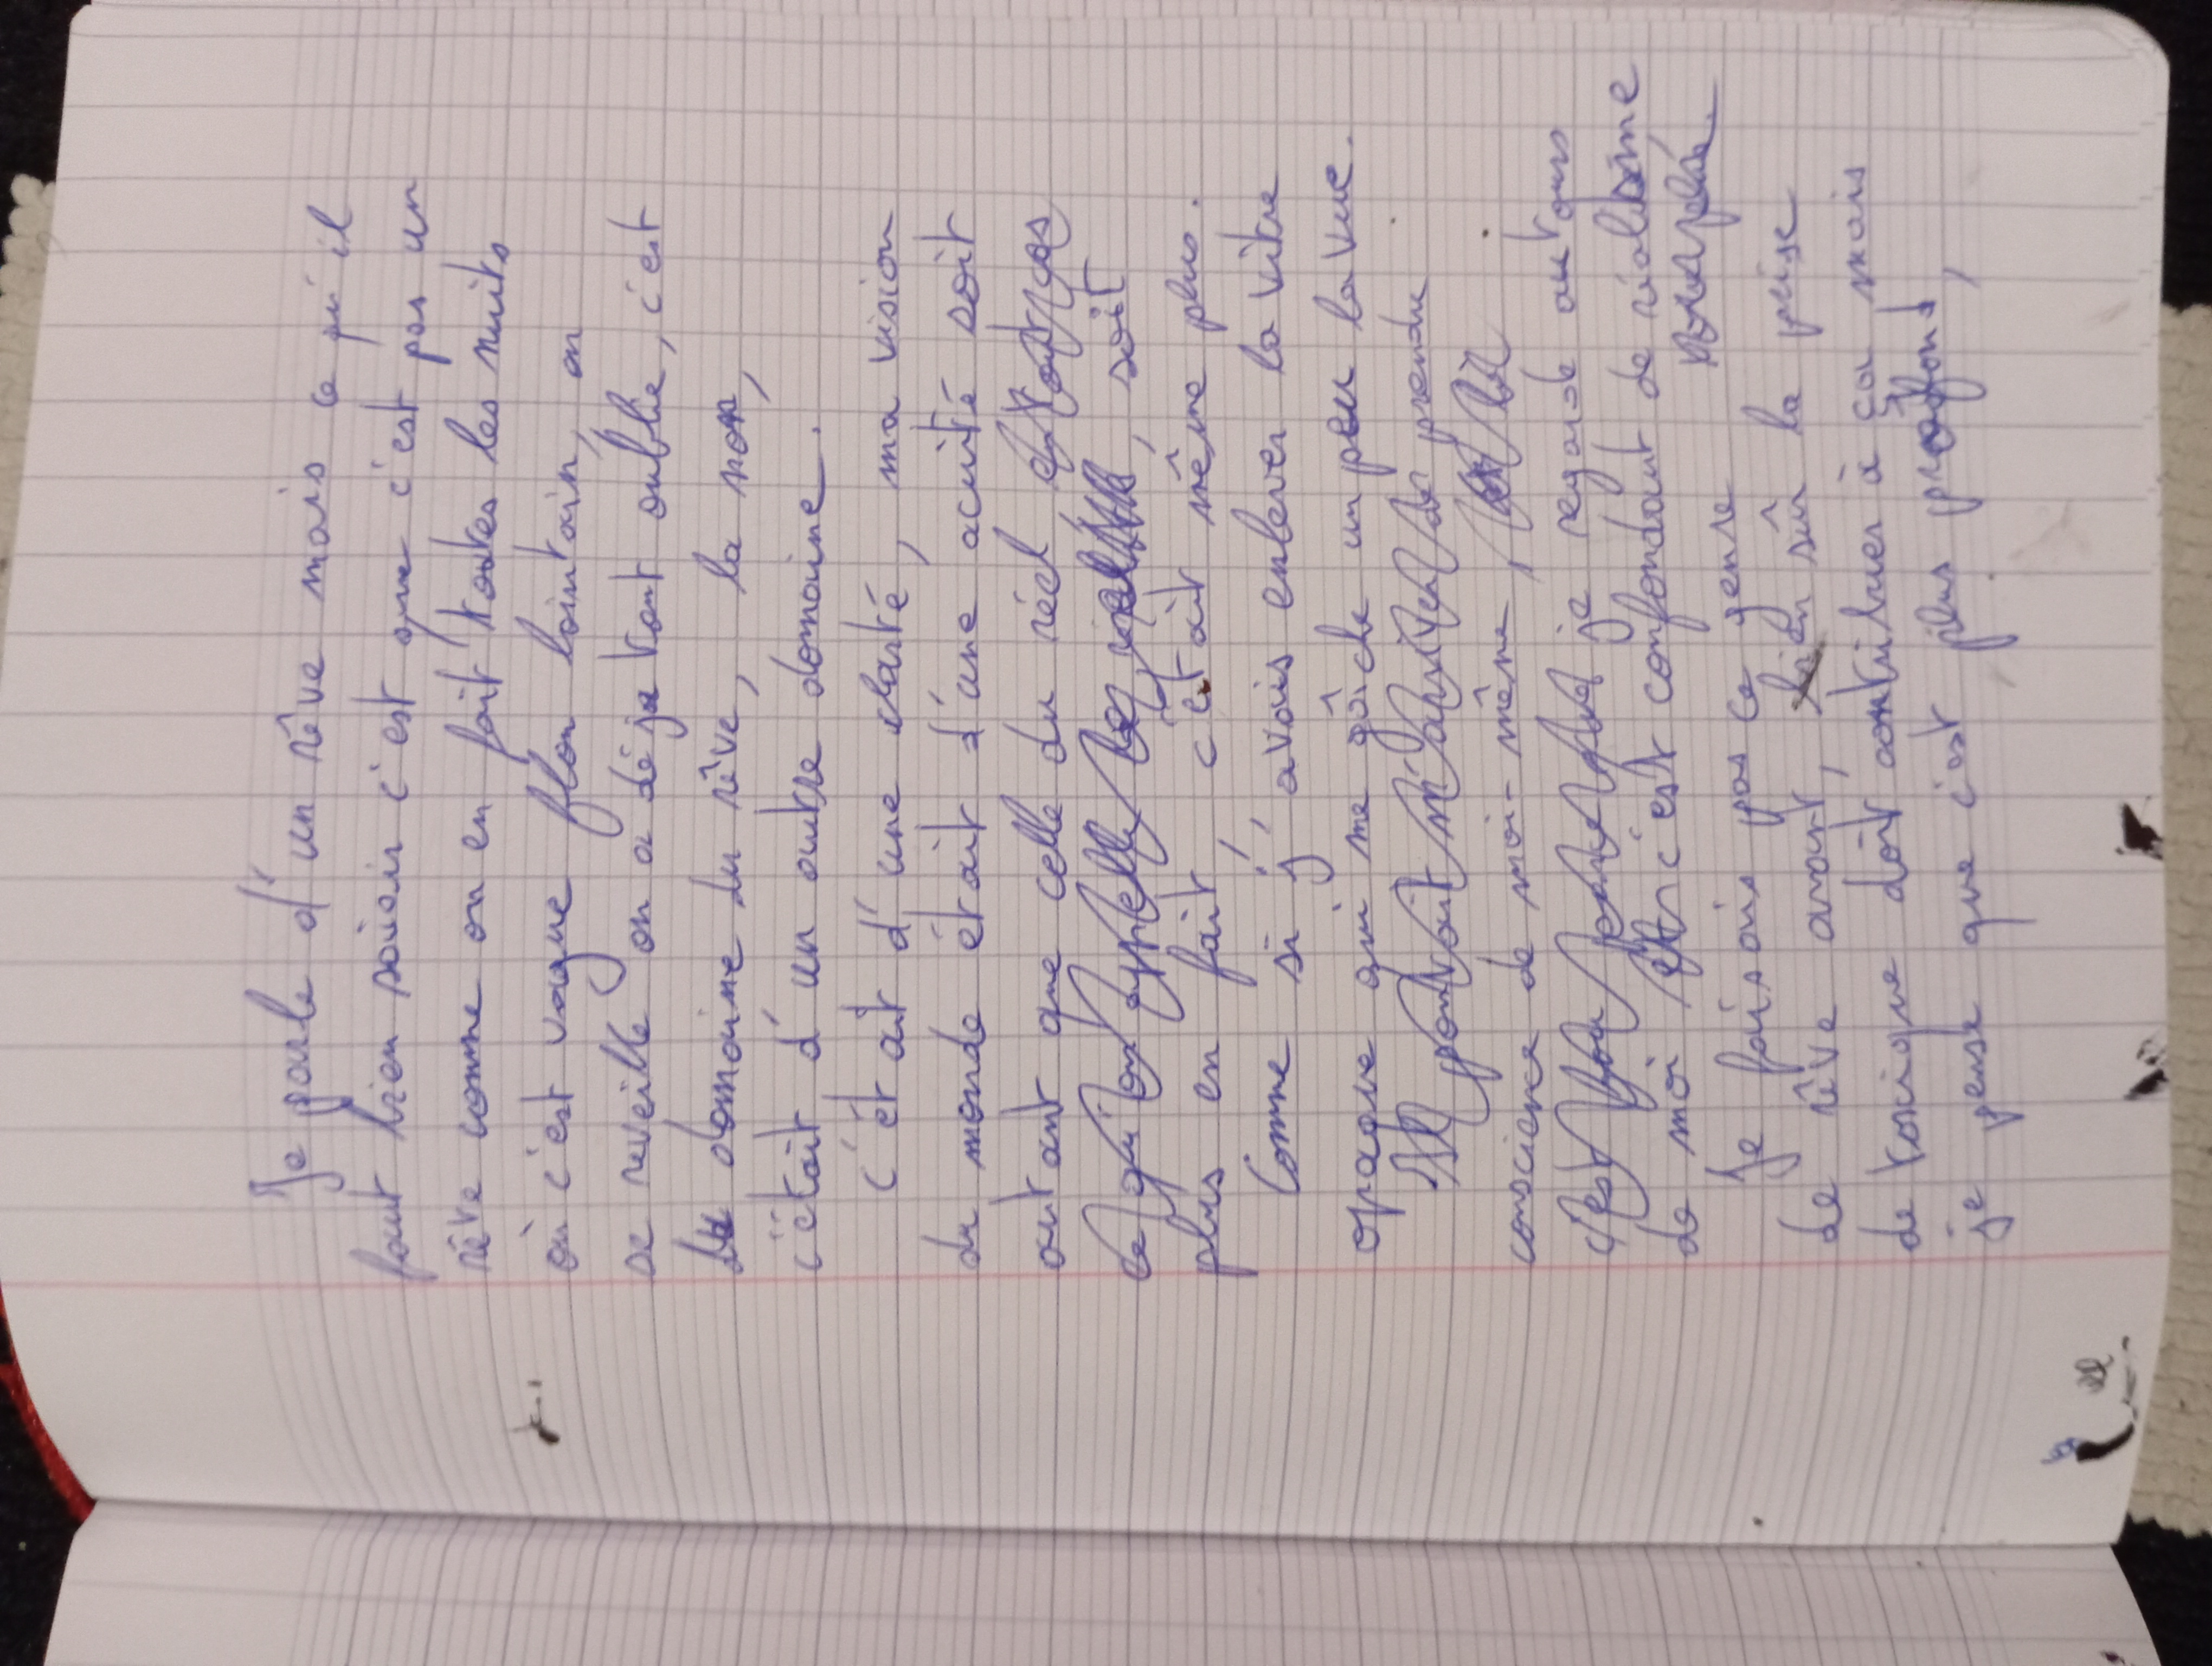 Je parle d'un rêve mais ce qu'il
faut bien savoir c'est que c'est pas un
rêve comme on en fait toutes les nuits
où c'est vague flou lointain, on
se reveille on a déja tout oublie, c'est
du domaine du rêve, la non,
c'était d'un autre domaine.
C'était d'une clarté, ma vision
du monde était d'une acuité soit
autant que celle du réel, en tout cas
ce qu'on appelle la réalité, soit
plus en fait, c'était même plus.
Comme si j'avais enlever la vitre
opaque qui me gâche un peu la vue.
Il pouvait m'arriver de prendre
conscience de moi-même, et là
c'est fou parce que je regarde autours
de moi et c'est confondant de réalisme
Je faisais pas ce genre
de rêve avant, bien sûr la prise
de toxique doit contribuer à ça mais
je pense que c'est plus profond,